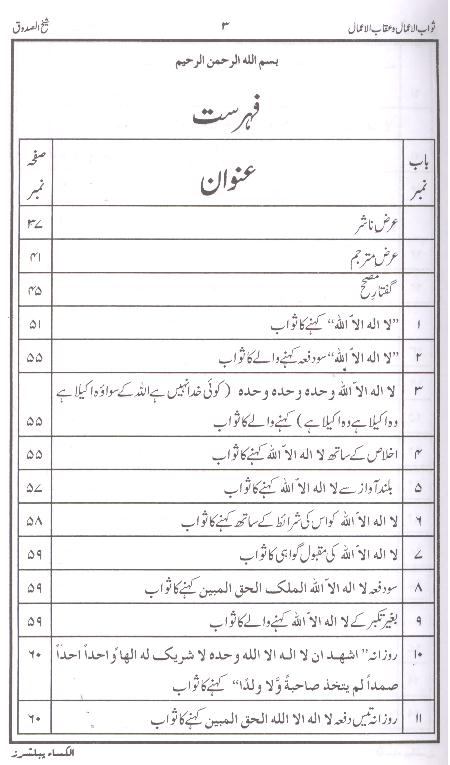 ثواب الاعمال و عقاب الاعمال ۳ شیخ الصدوق
بسم الله الرحمن الرحیم
فہرست
باب نمبر عنوان صفحہ نمبر
عرض ناشر ۳۷
عرض مترجم ۴۱
گفتارِ مصحح ۴۵
۱ ”لا اله الاّ الله“ کہنے کا ثواب ۵۱
۲ ”لا اله الاّ الله“ سو دفعہ کہنے والے کا ثواب ۵۵
۳ لا اله الاّ الله وحده وحده وحده (کوئی خدا نہیں ہے اللہ کے سوا وہ اکیلا ہے
وہ اکیلا ہے وہ اکیلا ہے) کہنے والے کا ثواب ۵۵
۴ اخلاص کے ساتھ لا اله الاّ الله کہنے کا ثواب ۵۵
۵ بلند آواز سے لا اله الاّ الله کہنے کا ثواب ۵۷
۶ لا اله الاّ الله کو اس کی شرائط کے ساتھ کہنے کا ثواب ۵۸
۷ لا اله الاّ الله کی مقبول گواہی کا ثواب ۵۹
۸ سو دفعہ لا اله الاّ الله الملک الحق المبین کہنے کا ثواب ۵۹
۹ بغیر تکبر کے لا اله الاّ الله کہنے والے کا ثواب ۵۹
۱۰ روزانہ ”اشهد ان لا الہ الا الله وحده لا شریک له الهاً واحداً احداً ۶۰
صمداً لم یتخذ صاحبةً وّلا ولدًا“ کہنے کا ثواب
۱۱ روزانہ تیس دفعہ لا اله الا الله الحق المبین کہنے کا ثواب ۶۰
الکساء پبلشرز